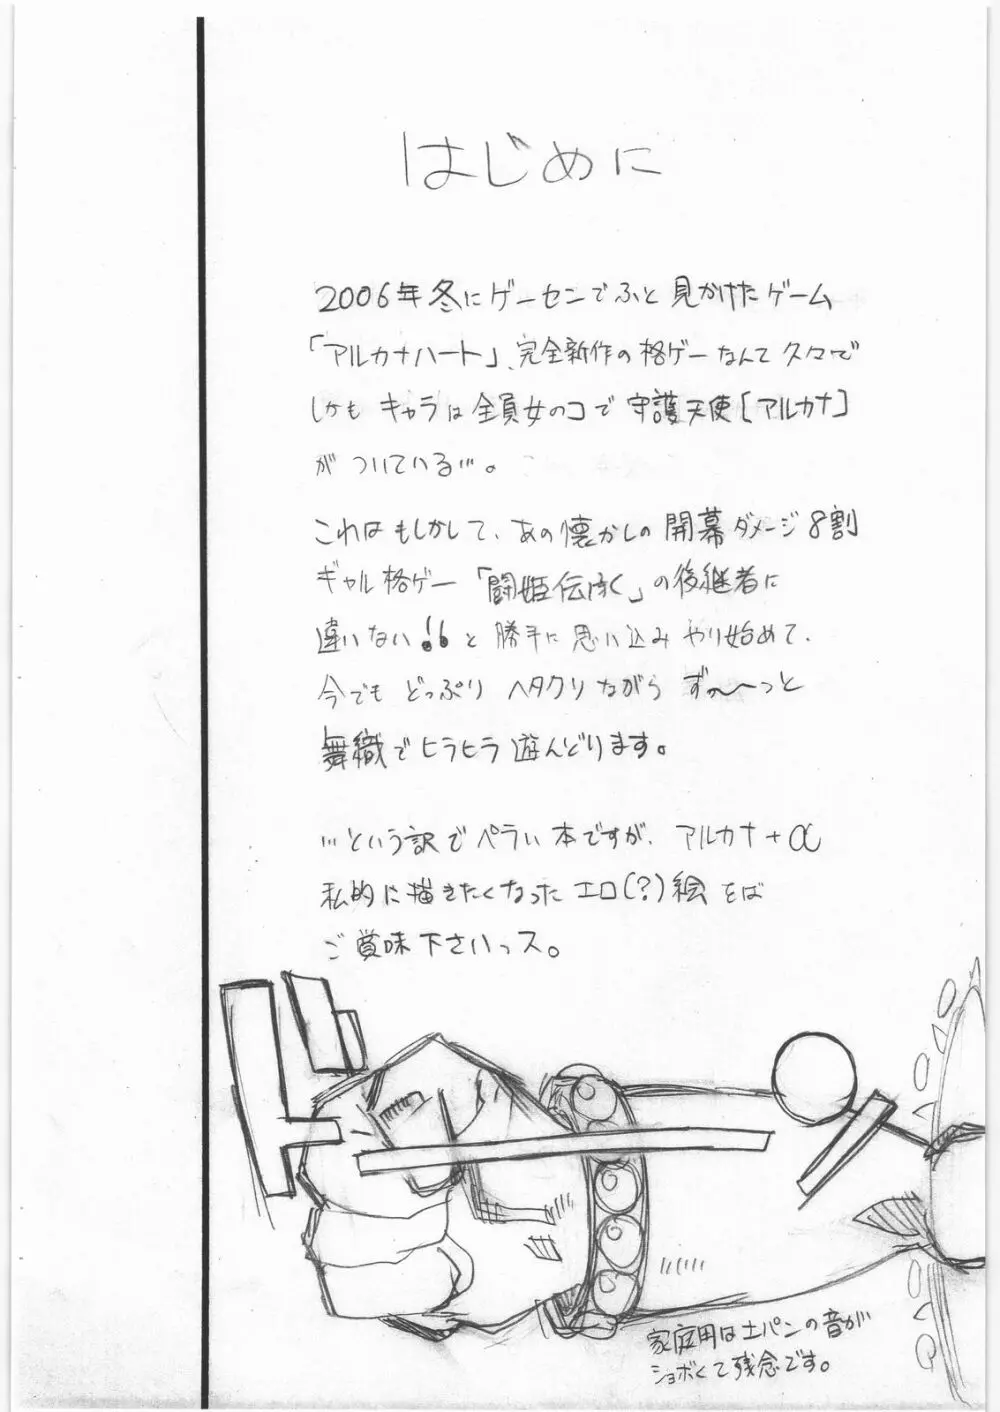 はじめに
2006年冬にゲーセンでふと見かけたゲーム
「アルカナハート」、完全新作の格ゲーなんて久々で
しかもキャラは全員女のコで守護天使[アルカナ]
がついている…。
これはもしかして、あの懐かしの開幕ダメージ8割
ギャル格ゲー「闘姫伝承」の後継者に
違いない!!と勝手に思い込みやり始めて、
今でもどっぷりヘタクソながらずっ〜っと
舞織でヒラヒラ遊んどります。
…という訳でペラい本ですが、アルカナ+α
私的に描きたくなったエロ(?)絵をば
ご賞味下さいっス。
家庭用は土パンの音が
ショボくて残念です。